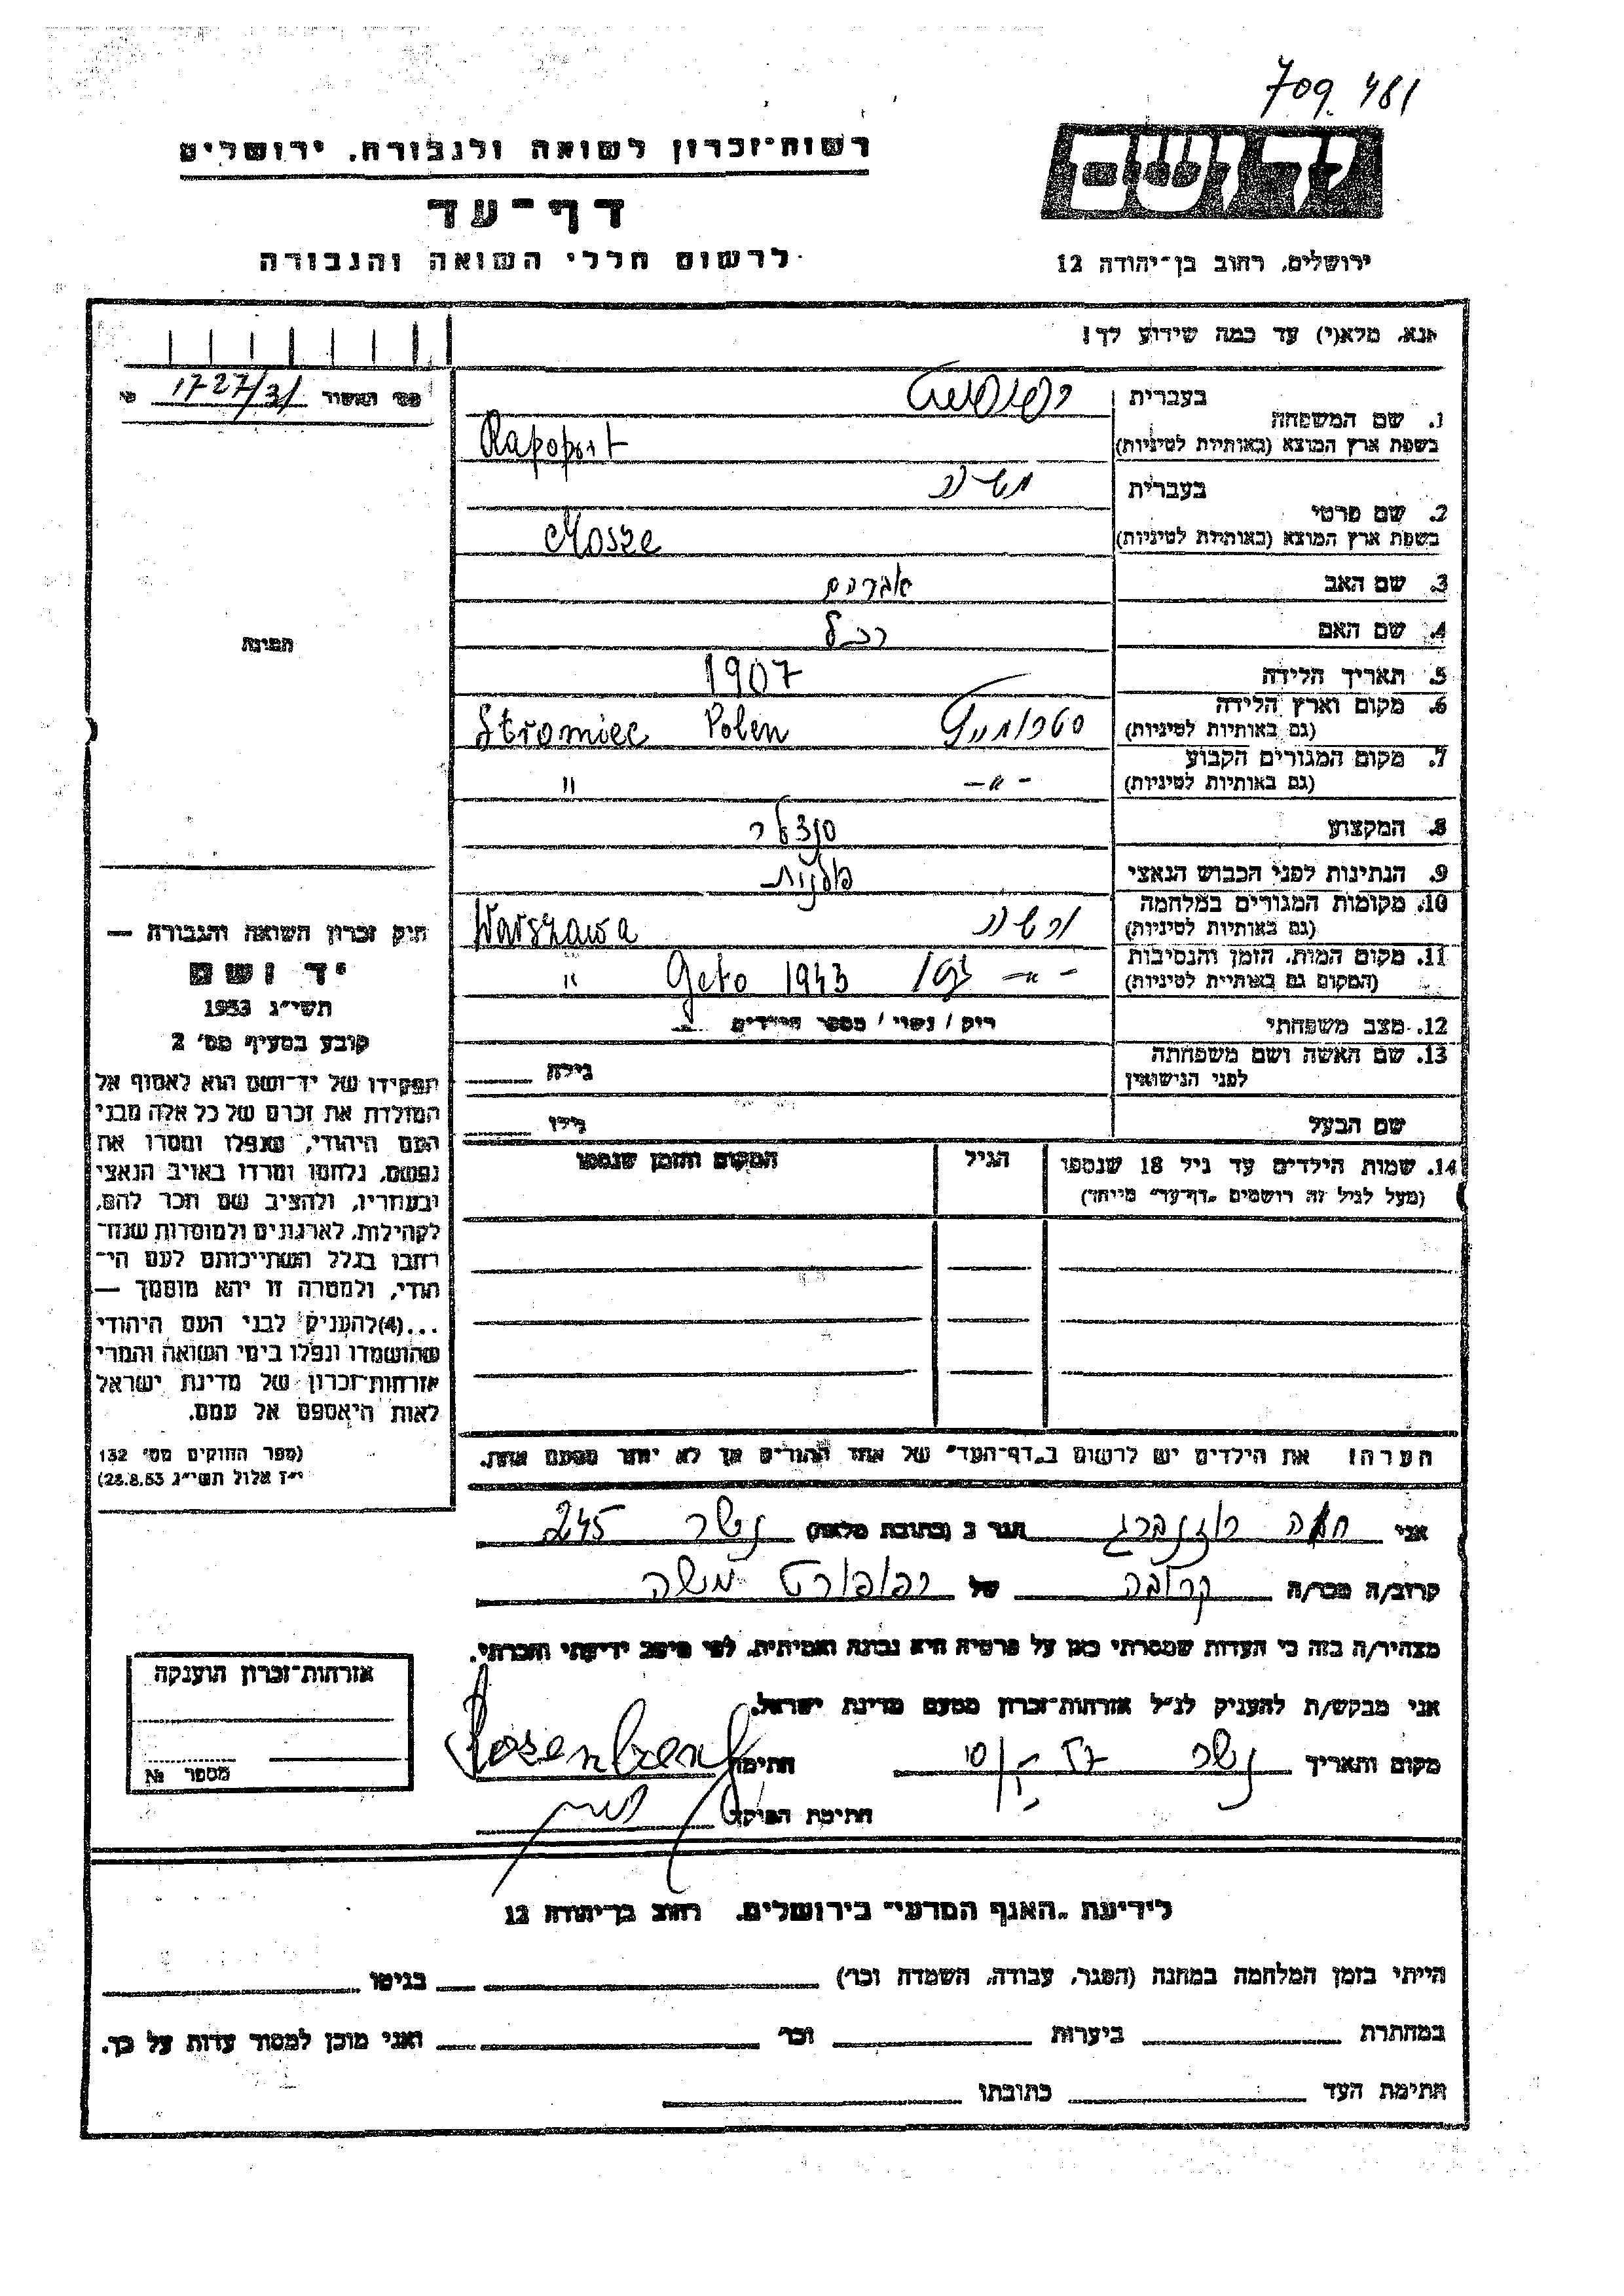 709 481
רשות־זכרון לשואה ולגבורה, ירושלים
דף־עד
לרשום חללי השואה והגבורה
יד ושם
ירושלים, רחוב בן־יהודה 12
אנא, מלא(י) עד כמה שידוע לך!
מס' האשור 1727/31
תמונה
1. שם המשפחה
בעברית רפופורט
בשפת ארץ המוצא (באותיות לטיניות) Rapoport
2. שם פרטי
בעברית משה
בשפת ארץ המוצא (באותיות לטיניות) Mosze
3. שם האב אברהם
4. שם האם רחל
5. תאריך הלידה 1907
6. מקום וארץ הלידה
(גם באותיות לטיניות) Stromiec Polen
7. מקום המגורים הקבוע
(גם באותיות לטיניות) - " - "
8. המקצוע סנדלר
9. הנתינות לפני הכבוש הנאצי פולנית
10. מקומות המגורים במלחמה
(גם באותיות לטיניות) ורשה Warszawa
11. מקום המות, הזמן והנסיבות
(המקום גם באותיות לטיניות) - " - גטו Geto 1943 "
12. מצב משפחתי רוק / נשוי / מספר הילדים
13. שם האשה ושם משפחתה
לפני הנישואין גילה
שם הבעל גילו
14. שמות הילדים עד גיל 18 שנספו
(מעל לגיל זה רושמים "דף־עד" מיוחד)
הגיל
המקום והזמן שנספו
חוק זכרון השואה והגבורה —
יד ושם
תשי"ג 1953
קובע בסעיף מס' 2
תפקידו של יד־ושם הוא לאסוף אל
המולדת את זכרם של כל אלה מבני
העם היהודי, שנפלו ומסרו את
נפשם, נלחמו ומרדו באויב הנאצי
ובעוזריו, ולהציב שם וזכר להם,
לקהילות, לארגונים ולמוסדות שנח־
רבו בגלל השתייכותם לעם הי־
הודי, ולמטרה זו יהא מוסמך —
...(4) להעניק לבני העם היהודי
שהושמדו ונפלו בימי השואה והמרי
אזרחות־זכרון של מדינת ישראל
לאות היאספם אל עמם.
(ספר החוקים מס' 132
י"ז אלול תשי"ג 28.8.53)
הערה! את הילדים יש לרשום ב"דף־העד" של אחד ההורים אך לא יותר מפעם אחת.
אני חוה רוזנברג הגר ב (כתובת מלאה) נשר 245
קרוב/ה מכר/ה קרובה של רפופורט משה
מצהיר/ה בזה כי העדות שמסרתי כאן על פרטיה היא נכונה ואמיתית, לפי מיטב ידיעתי והכרתי.
אני מבקש/ת להעניק לנ"ל אזרחות־זכרון מטעם מדינת ישראל.
מקום ותאריך נשר חתימה Rosenberg
חתימת הפוקד
אזרחות־זכרון הוענקה
מספר №
לידיעת "האגף המדעי" בירושלים, רחוב בן־יהודה 12
הייתי בזמן המלחמה במחנה (הסגר, עבודה, השמדה וכו') בגיטו
במחתרת ביערות וכו' ואני מוכן למסור עדות על כך.
חתימת העד כתובתו